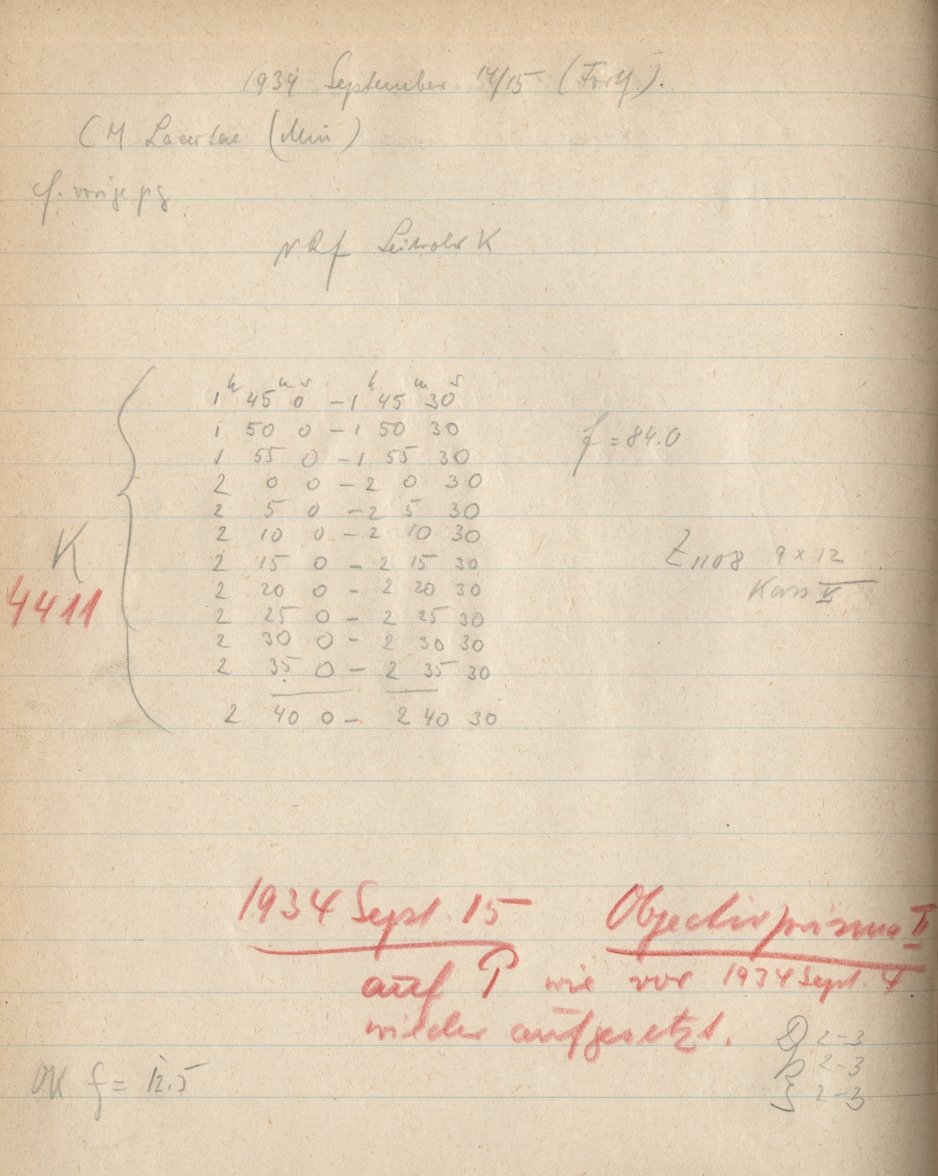 1934 September 14/15 (Forts.).
CM Lacertae (Min)
cf. vorige pg
Leitrohr K
h m s h m s
1 45 0 – 1 45 30
1 50 0 – 1 50 30
f = 84.0
1 55 0 – 1 55 30
2 0 0 – 2 0 30
2 5 0 – 2 5 30
2 10 0 – 2 10 30
K
2 15 0 – 2 15 30
Z1108 9 x 12
4411
2 20 0 – 2 20 30
Kass II
2 25 0 – 2 25 30
2 30 0 – 2 30 30
2 35 0 – 2 35 30
2 40 0 – 2 40 30
1934 Sept. 15 Objectivprisma II
auf P wie vor 1934 Sept. 4
wieder aufgesetzt.
D 2–3
p 2–3
f = 12.5
S 2–3